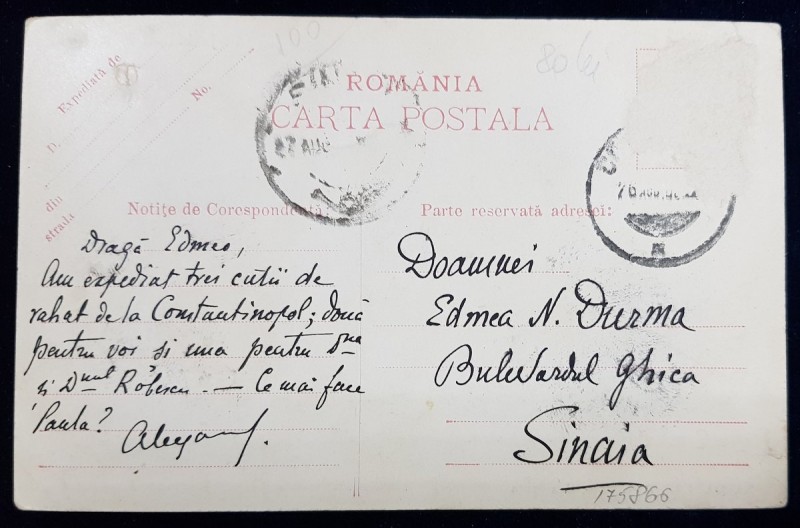 100
80 lei
ROMÂNIA
CARTA POSTALA
D. Expediată de
No.
din
strada
27 AUG
Notițe de Corespondență:
Parte reservată adresei:
Dragă Edmeo,
Am expediat trei cutii de
rahat de la Constantinopol; două
pentru voi si una pentru Dna
si Dnul Robescu. — Ce mai face
Paula?
Doamnei
Edmea N. Durma
Bulevardul Ghica
Sinaia
175866